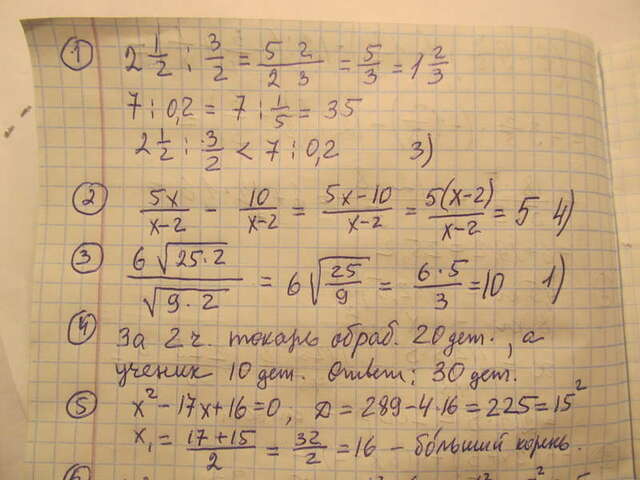 1 2 1/2 : 3/2 = 5 2 / 2 3 = 5/3 = 1 2/3
7 : 0,2 = 7 : 1/5 = 35
2 1/2 : 3/2 < 7 : 0,2 3)
2 5x/(x-2) - 10/(x-2) = (5x-10)/(x-2) = 5(x-2)/(x-2) = 5 4)
3 6√(25·2)/√(9·2) = 6√(25/9) = (6·5)/3 = 10 1)
4 За 2 ч. токарь обраб. 20 дет., а
ученик 10 дет. Ответ: 30 дет.
5 x² - 17x + 16 = 0; D = 289 - 4·16 = 225 = 15²
x₁ = (17+15)/2 = 32/2 = 16 - больший корень.